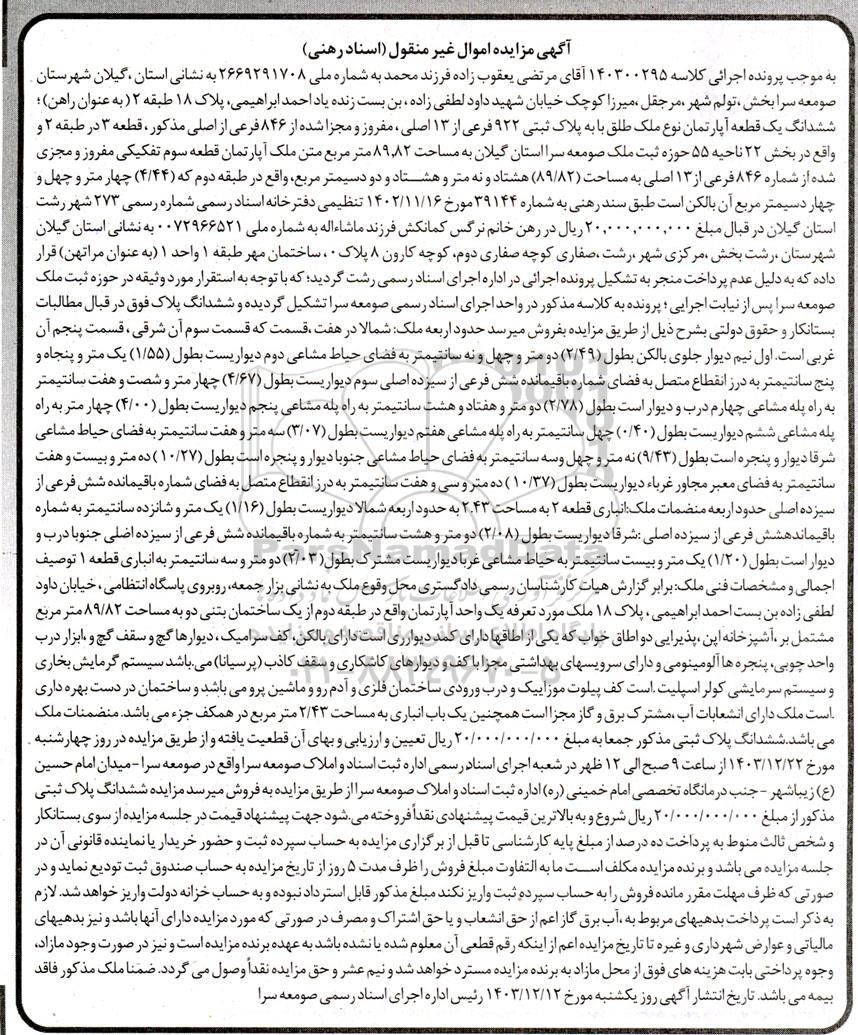 آگهی مزایده اموال غیر منقول (اسناد رهنی)
به موجب پرونده اجرائی کلاسه ۱۴۰۳۰۰۲۹۵ آقای مرتضی یعقوب زاده فرزند محمد به شماره ملی ۲۶۶۹۲۹۱۷۰۸ به نشانی استان ،گیلان شهرستان
صومعه سرا بخش ،تولم شهر ،مرجقل ،میرزا کوچک خیابان شهید داود لطفی زاده ، بن بست زنده یاد احمد ابراهیمی، پلاک ۱۸ طبقه ۲ ( به عنوان راهن) ؛
ششدانگ یک قطعه آپارتمان نوع ملک طلق با به پلاک ثبتی ۹۲۲ فرعی از ۱۳ اصلی ، مفروز و مجزا شده از ۸۴۶ فرعی از اصلی مذکور ، قطعه ۳ در طبقه ۲ و
واقع در بخش ۲۲ ناحیه ۵۵ حوزه ثبت ملک صومعه سرا استان گیلان به مساحت ۸۹,۸۲ متر مربع متن ملک آپارتمان قطعه سوم تفکیکی مفروز و مجزی
شده از شماره ۸۴۶ فرعی از ۱۳ اصلی به مساحت (۸۹/۸۲) هشتاد و نه متر و هشـتـاد و دو دسیمتر مربع، واقع در طبقه دوم که (۴/۴۴) چهار متر و چهل و
چهار دسیمتر مربع آن بالکن است طبق سند رهنی به شماره ۳۹۱۴۴ مورخ ۱۴۰۲/۱۱/۱۶ تنظیمی دفترخانه اسناد رسمی شماره رسمی ۲۷۳ شهر رشت
استان گیلان در قبال مبلغ ۲۰,۰۰۰,۰۰۰,۰۰۰ ریال در رهن خانم نرگس کمانکش فرزند ماشااله به شماره ملی ۰۰۷۲۹۶۶۵۲۱ به نشانی استان گیلان
شهرستان ،رشت بخش ،مرکزی شهر ،رشت ،صفاری کوچه صفاری دوم، کوچه کارون ۸ پلاک ۰ ، ساختمان مهر طبقه ۱ واحد ۱ (به عنوان مرتهن) قرار
داده که به دلیل عدم پرداخت منجر به تشکیل پرونده اجرائی در اداره اجرای اسناد رسمی رشت گردید؛ که با توجه به استقرار مورد وثیقه در حوزه ثبت ملک
صومعه سرا پس از نیابت اجرایی ؛ پرونده به کلاسه مذکور در واحد اجرای اسناد رسمی صومعه سرا تشکیل گردیده و ششدانگ پلاک فوق در قبال مطالبات
بستانکار و حقوق دولتی بشرح ذیل از طریق مزایده بفروش میرسد حدود اربعه ملک: شمالا در هفت ،قسمت که قسمت سوم آن شرقی ، قسمت پنجم آن
غربی است. اول نیم دیوار جلوی بالکن بطول (۲/۴۹) دو متر و چهل و نه سانتیمتر به فضای حیاط مشاعی دوم دیواریست بطول (۱/۵۵) یک متر و پنجاه و
پنج سانتیمتر به درز انقطاع متصل به فضای شماره باقیمانده شش فرعی از سیزده اصلی سوم دیواریست بطول (۴/۶۷) چهار متر و شصت و هفت سانتیمتر
به راه پله مشاعی چهارم درب و دیوار است بطول (۲/۷۸) دو متر و هفتاد و هشت سانتیمتر به راه پله مشاعی پنجم دیواریست بطول (۴/۰۰) چهار متر به راه
پله مشاعی ششم دیواریست بطول (۰/۴۰) چهل سانتیمتر به راه پله مشاعی هفتم دیواریست بطول (۳/۰۷) سه متر و هفت سانتیمتر به فضای حیاط مشاعی
شرقا دیوار و پنجره است بطول (۹/۴۳) نه متر و چهل وسه سانتیمتر به فضای حیاط مشاعی جنوبا دیوار و پنجره است بطول (۱۰/۲۷) ده متر و بیست و هفت
سانتیمتر به فضای معبر مجاور غرباء دیواریست بطول (۱۰/۳۷) ده متر و سی و هفت سانتیمتر به درز انقطاع متصل به فضای شماره باقیمانده شش فرعی از
سیزده اصلی حدود اربعه منضمات ملک:انباری قطعه ۲ به مساحت ۲.۴۳ به حدود اربعه شمالا دیواریست بطول (۱/۱۶) یک متر و شانزده سانتیمتر به شماره
باقیماندهشش فرعی از سیزده اصلی :شرقا دیواریست بطول (۲/۰۸) دو متر و هشت سانتیمتر به شماره باقیمانده شش فرعی از سیزده اضلی جنوبا درب و
دیوار است بطول (۱/۲۰) یک متر و بیست سانتیمتر به حیاط مشاعی غربا دیواریست مشترک بطول (۲/۰۳) دو متر و سه سانتیمتر به انباری قطعه ۱ توصیف
اجمالی و مشخصات فنی ملک: برابر گزارش هیات کارشناسان رسمی دادگستری محل وقوع ملک به نشانی بزار جمعه، روبروی پاسگاه انتظامی ، خیابان داود
لطفی زاده بن بست احمد ابراهیمی ، پلاک ۱۸ ملک مورد تعرفه یک واحد آپارتمان واقع در طبقه دوم از یک ساختمان بتنی دو به مساحت ۸۹/۸۲ متر مربع
مشتمل بر ،آشپزخانه اپن ،پذیرایی دو اطاق خواب که یکی از اطاقها دارای کمد دیواری است دارای بالکن، کف سرامیک ، دیوارها گچ و سقف گچ و ،ابزار درب
واحد چوبی، پنجره ها آلومینومی و دارای سرویسهای بهداشتی مجزا با کف و دیوارهای کاشکاری و سقف کاذب (پرسیانا) می.باشد سیستم گرمایش بخاری
و سیستم سرمایشی کولر اسپلیت .است کف پیلوت موزاییک و درب ورودی ساختمان فلزی و آدم رو و ماشین پرو می باشد و ساختمان در دست بهره داری
.است ملک دارای انشعابات آب ،مشترک برق و گاز مجزا است همچنین یک باب انباری به مساحت ۲/۴۳ متر مربع در همکف جزء می باشد. منضمنات ملک
می باشد.ششدانگ پلاک ثبتی مذکور جمعا به مبلغ ۲۰/۰۰۰/۰۰۰/۰۰۰ ریال تعیین و ارزیابی و بهای آن قطعیت یافته و از طریق مزایده در روز چهارشنبه
مورخ ۱۴۰۳/۱۲/۲۲ از ساعت ۹ صبح الی ۱۲ ظهر در شعبه اجرای اسناد رسمی اداره ثبت اسناد و املاک صومعه سرا واقع در صومعه سرا-میدان امام حسین
(ع) زیباشهر - جنب درمانگاه تخصصی امام خمینی (ره) اداره ثبت اسناد و املاک صومعه سرا از طریق مزایده به فروش میرسد مزایده ششدانگ پلاک ثبتی
مذکور از مبلغ ۲۰/۰۰۰/۰۰۰/۰۰۰ ریال شروع و به بالاترین قیمت پیشنهادی نقداً فروخته می.شود جهت پیشنهاد قیمت در جلسه مزایده از سوی بستانکار
و شخص ثالث منوط به پرداخت ده درصد از مبلغ پایه کارشناسی تا قبل از برگزاری مزایده به حساب سپرده ثبت و حضور خریدار یا نماینده قانونی آن در
جلسه مزایده می باشد و برنده مزایده مکلف اسـت ما به التفاوت مبلغ فروش را ظرف مدت ۵ روز از تاریخ مزایده به حساب صندوق ثبت تودیع نماید و در
صورتی که ظرف مهلت مقرر مانده فروش را به حساب سپرده ثبت واریز نکند مبلغ مذکور قابل استرداد نبوده و به حساب خزانه دولت واریز خواهد شد. لازم
به ذکر است پرداخت بدهیهای مربوط به ،آب برق گاز اعم از حق انشعاب و یا حق اشتراک و مصرف در صورتی که مورد مزایده دارای آنها باشد و نیز بدهیهای
مالیاتی و عوارض شهرداری و غیره تا تاریخ مزایده اعم از اینکه رقم قطعی آن معلوم شده یا نشده باشد به عهده برنده مزایده است و نیز در صورت وجود مازاد،
وجوه پرداختی بابت هزینه های فوق از محل مازاد به برنده مزایده مسترد خواهد شد و نیم عشر و حق مزایده نقداً وصول می گردد. ضمنا ملک مذکور فاقد
بیمه می باشد. تاریخ انتشار آگهی روز یکشنبه مورخ ۱۴۰۳/۱۲/۱۲ رئیس اداره اجرای اسناد رسمی صومعه سرا
ParsNamadData